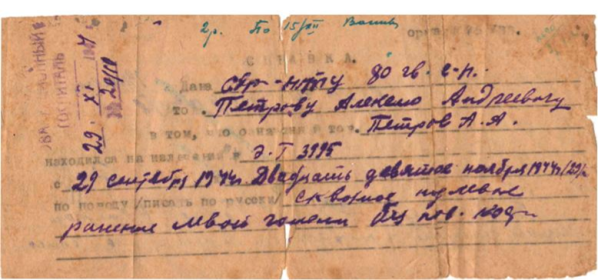 2 р. По 15/XII
СПРАВКА.
ЭВАКУАЦИОННЫЙ
ГОСПИТАЛЬ
29. XI 1944
№ 29/10
Дана стр-нту 80 гв. с-п.
то. Петрову Алексею Андреевичу
в том, что он
Петров А. А.
находился на излечении в Э.Г 3995
с 29 сентября 1944г. Двадцать девятое ноября 1944г/29/
по поводу /писать по русски/ сквозное пулевое
ранение левой голени без пов. кости